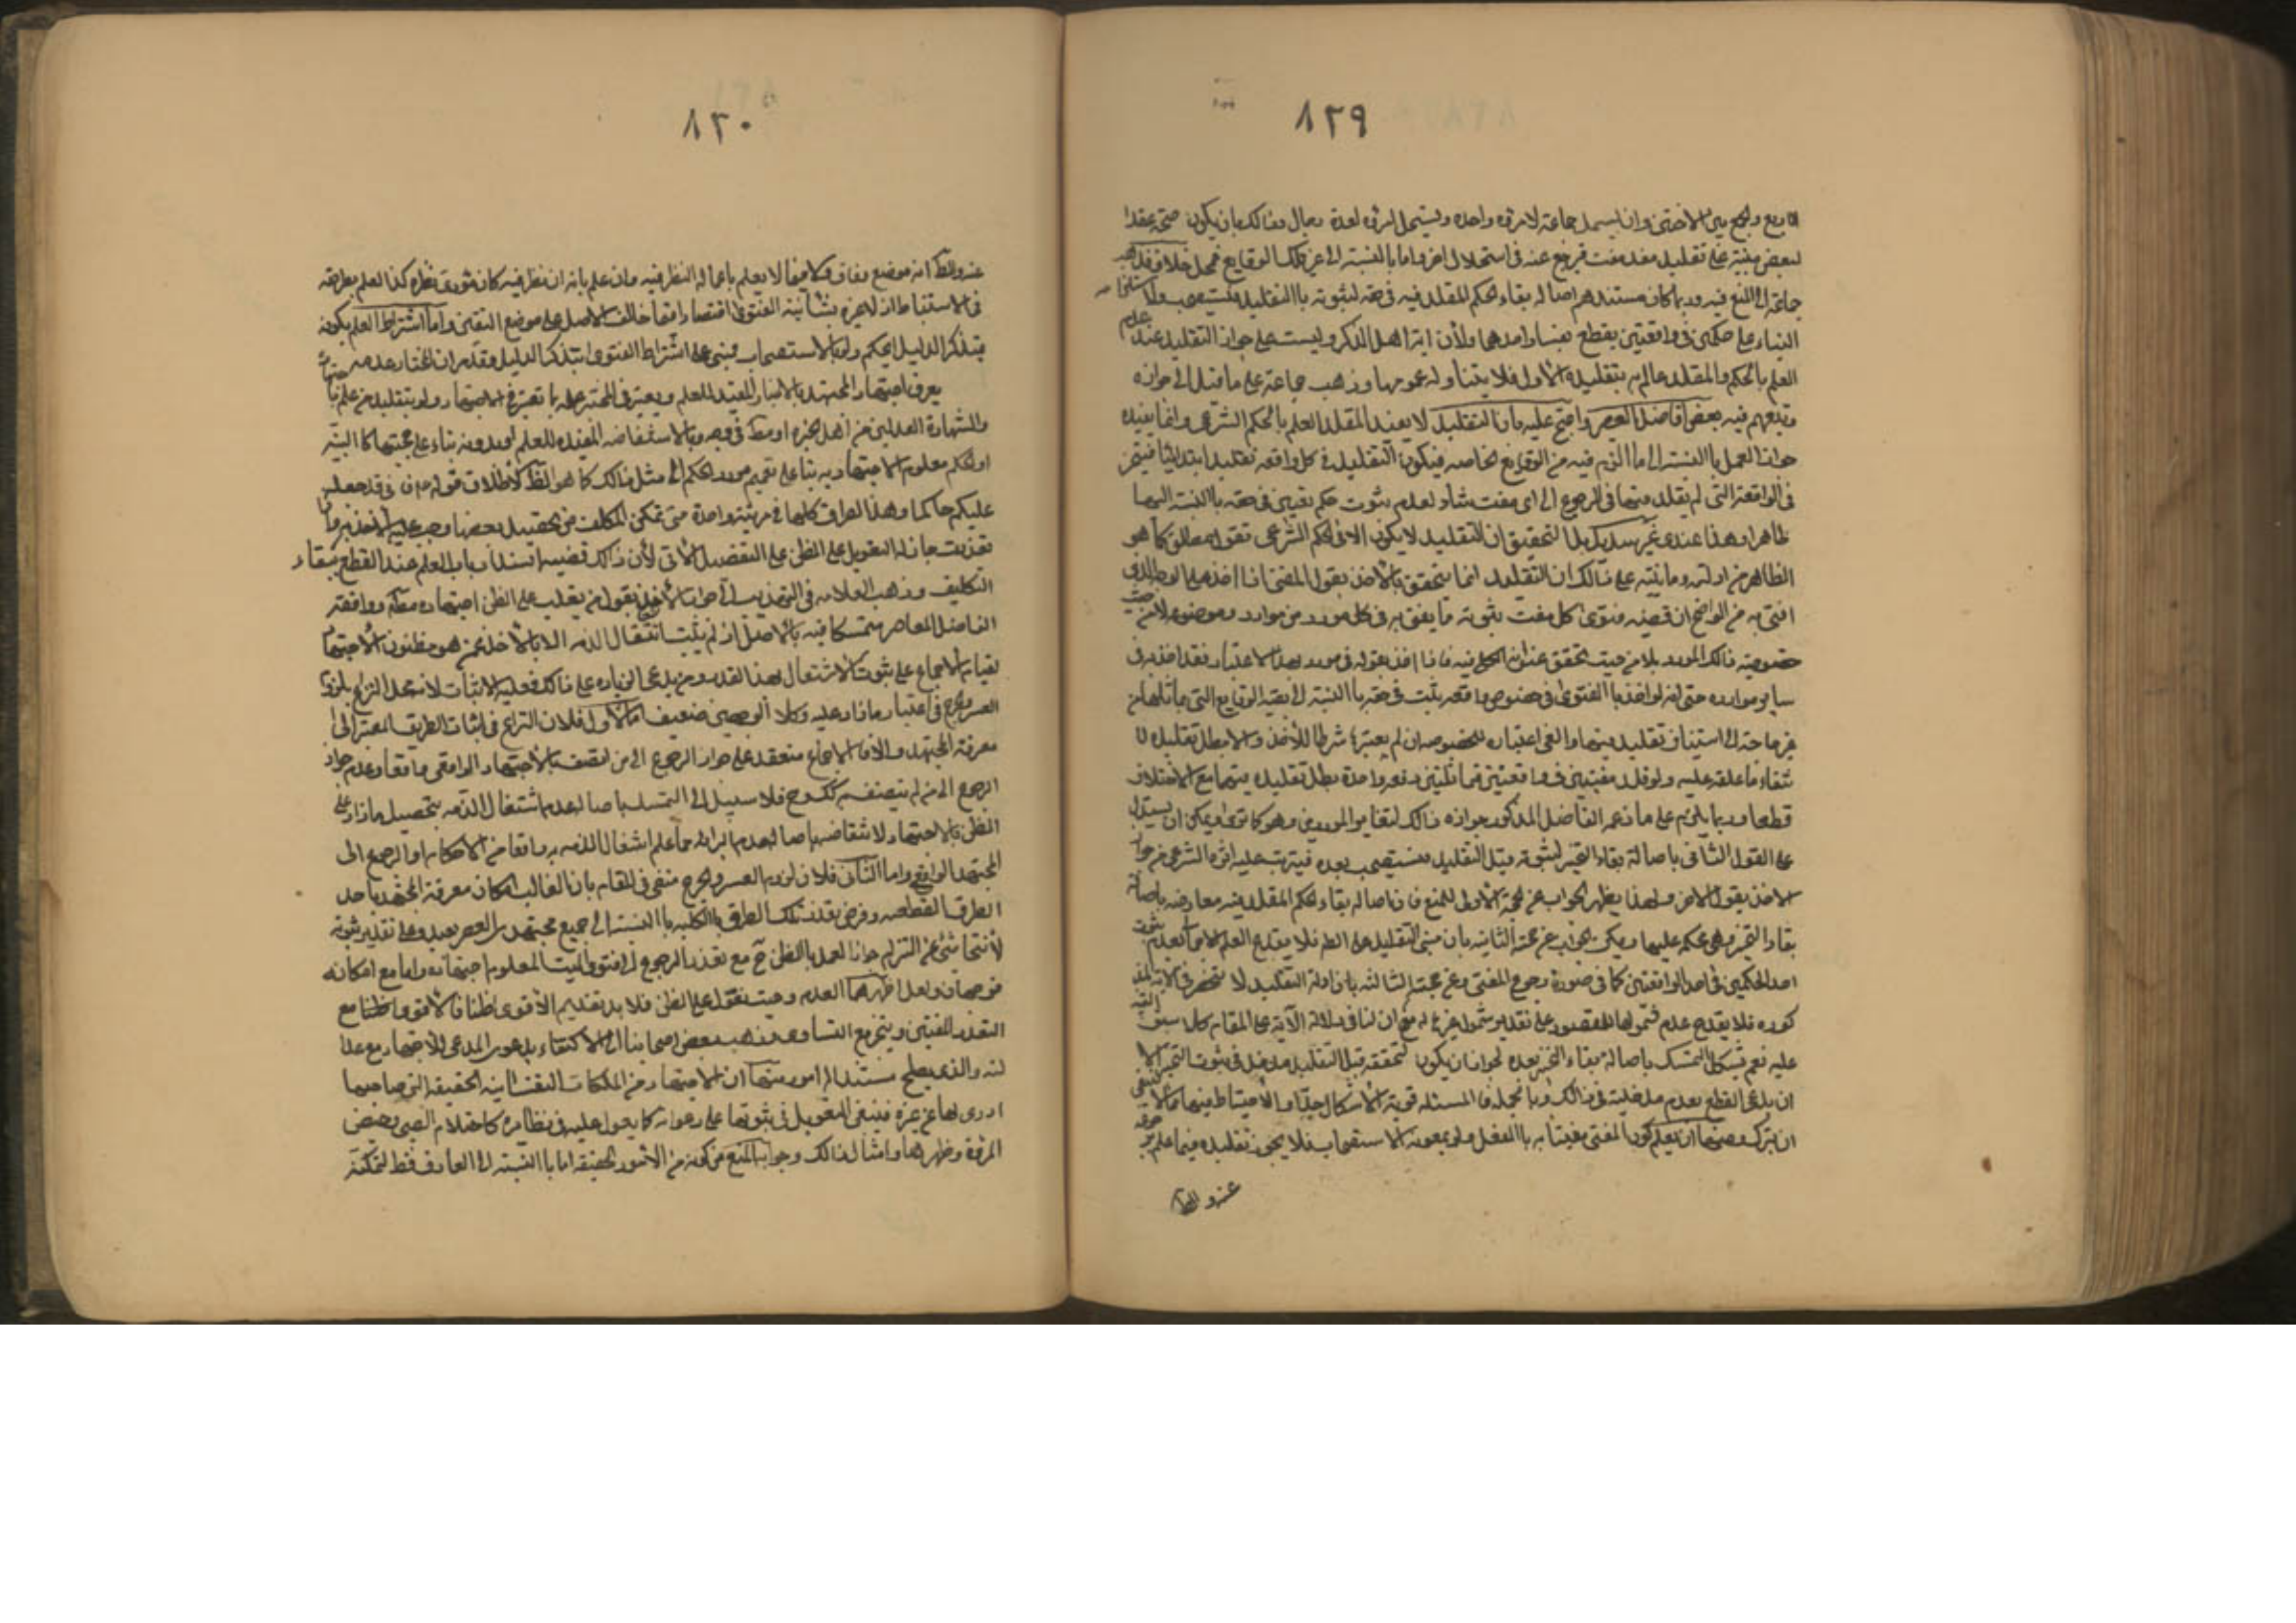 ٨٢٩
الاربع والجمع بين الاختين وان يستحل جماعة لامرءة واحدة ويستحل المرءة لعدة رجال وذلك بان يكون صحة عقد
لبعض مبنية على تقليد مفت فيرجع عنه في استحلال اخر واما بالنسبة الى غير تلك الوقايع فمحل خلاف فذهب
جماعة الى المنع فيه وربما كان مستندهم اصالة بقاء الحكم المقلد فيه في حقه لثبوته بالتقليد فيستصحب ولاستلزامه
البناء على حكمين في واقعتين يقطع بفساد احدهما ولأن اية اهل الذكر وليست على جواز التقليد عند عدم
العلم بالحكم والمقلد عالم به بتقليده الأول فلا يتناوله عمومها وذهب جماعة على ما قيل الى جوازه
وتبعهم فيه بعض أفاضل العصر واحتج عليه بان التقليد لا يفيد المقلد العلم بالحكم الشرعي وانما يفيده
جواز العمل بالنسبة الى ما التزم فيه من الوقايع الخاصه فيكون التقليد في كل واقعه تقليدا ابتدائيا فيتخير
في الواقعة التي لم يقلد فيها في الرجوع الى اى مفت شاء لعدم ثبوت حكم تعييني في حقه بالنسبة اليها
ظاهرا وهذا عندى غير سديد بل التحقيق ان التقليد لا يكون الا في الحكم الشرعي بقول مطلق كما هو
الظاهر من ادلته وما بنيته على ذلك ان التقليد انما يتحقق بالأخذ بقول المفتى فاذا اخذ على الوجه الذى
افتى به من الواضح ان قضية فتوى كل مفت بثبوت ما يفتى به في كل مورد من موارد موضوعه لا من حيث
خصوصية ذلك المورد بل من حيث تحقق عنوان الكلى فيه فاذا اخذ بقوله في مورد بهذا الاعتبار فقد اخذ به في
ساير موارده حتى انه لو اخذ بالفتوى في خصوص واقعه يثبت في حقه بالنسبة الى بقية الوقايع التي ماثلها من
غير حاجة الى استيناف تقليد فيها والغى اعتباره للخصوصه ان لم يعتبرها شرطا للأخذ والا بطل تقليده لا
نتفاء ما علقه عليه ولو قلد مفتيين في واقعتين متماثلتين دفعه واحدة بطل تقليده فيهما مع الاختلاف
قطعا وربما يلزم على ما زعمه الفاضل المذكور جوازه ذلك لتغاير الموردين وهو كما ترى ويمكن ان يستدل
على القول الثاني باصالة بقاء التخيير لثبوته قبل التقليد فيستصحب بعده فيترتب عليه اثره الشرعي من جواز
الاخذ بقول الاخر ولهذا يظهر الجواب عن حجة الأولى للمنع فان اصالة بقاء الحكم المقلد فيه معارضه باصالة
بقاء التخيير وهي محكمة عليها ويمكن الجواب عن حجة الثانيه بان مبنى التقليد على الظاهر فلا يقدح العلم الاجمالى بعدم ثبوت
احد الحكمين في احد الواقعتين كما في صورة رجوع المفتى وعن حجتهم الثالثه بان ادلة التقليد لا تنحصر في الاية المذ
كوره فلا يقدح عدم شمولها للمقصود على تقدير شمول غيرها له مع ان لنا في دلالة الآية على المقام كلاما سبق التنبيه
عليه نعم يشكل التمسك باصالة بقاء التخيير بعده لجواز ان يكون لتحققه قبل التقليد مدخل في ثبوت التخيير الا
ان يدعى القطع بعدم مدخليته في ذلك وبالجملة فالمسئله قوية الأشكال جدا والأحتياط فيها مما لا ينبغي
ان يترك ومنها ان يعلم كون المفتى مفتيا به بالفعل ولو بمعونة الاستصحاب فلا يجوز تقليده فيما علم رجوعه
عنه والظاهر
٨٣٠
عنه والظاهر انه موضع وفاق وكذا فيما لا يعلم باعماله النظر فيه وان علم بانه ان نظر فيه كان مؤدى نظره كذا لعلمه بطريقته
في الاستنباط اذ لا عبرة بشأنية الفتوى اقتصارا فيما خالف الاصل على موضع اليقين واما اشتراط العلم بكونه
متذكرا لدليل الحكم ولو بالاستصحاب فمبنى على اشتراط الفتوى بتذكر الدليل وقد مر ان المختار عدمه
يعرف اجتهاد المجتهد بالاختبار المفيد للعلم ويعتبر في المختبر علمه بما تعتبر في الاجتهاد ولو بتقليد من علم باجتهاده
والشهادة العدلين من اهل الخبرة او مطلقا في وجه وبالاستفاضه المفيده للعلم او بدونه بناء على حجيتها كالبينة
او بحكم معلوم الاجتهاد به بناء على تعميم مورد الحكم الى مثل ذلك كما هو الظاهر لأطلاق قوله فانى قد جعلته
عليكم حاكما وهذه الطرق كلها في مرتبة واحدة متى تمكن المكلف من تحصيل بعضها وجب عليه الأخذ به وان
تعذرت جاز له التعويل على الظن على التفصيل الآتى لأن ذلك قضية انسداد باب العلم عند القطع ببقاء
التكليف وذهب العلامه في التهذيب الى جواز الأخذ بقول من يغلب على الظن اجتهاده مطلقا ووافقه
الفاضل المعاصر متمسكا فيه بالاصل اذ لم يثبت اشتغال الذمه الا بالأخذ عمن هو مظنون الأجتهاد
لقيام الاجماع على ثبوت الاشتغال بهذا القدر ومن يدعى الزياده على ذلك فعليه الاثبات لانه محل النزاع بلزوم
العسر والحرج في اعتبار ما زاد عليه وكلا الوجهين ضعيف اما الأول فلان النزاع في اثبات الطريق المعتبر الى
معرفة المجتهد والا فالاجماع منعقد على جواز الرجوع الى من اتصف بالأجتهاد الواقعي واقعا وعدم جواز
الرجوع الى من لم يتصف به كك وح فلا سبيل الى التمسك باصالة عدم اشتغال الذمه بتحصيل ما زاد على
الظن بالاجتهاد لانتقاضه باصالة عدم البرائة مما علم اشتغال الذمه به واقعا من الاحكام او الرجوع الى
المجتهد الواقعى واما الثاني فلان لزوم العسر والحرج منفى في المقام بان الغالب امكان معرفة المجتهد باحد
الطرق القطعيه وفرض تعذر تلك الطرق بالكلية بالنسبة الى جميع مجتهدى العصر بعيد وعلى تقدير ثبوته
لأنتحاشى عن التزام جواز العمل بالظن ح مع تعذر الرجوع الى فتوى الميت المعلوم اجتهاده واما مع امكانه
فوجهان ولعل اظهرهما العدم وحيث نعول على الظن فلا بد بتقديم الأقوى ظنا فالأقوى ظنا مع
التعذر المفتيين ويتخير مع التساوى وذهب بعض اصحابنا الى الاكتفاء بدعوى المدعى للأجتهاد مع عدا
لته والذى يصلح مستندا له امور منها ان الاجتهاد من الملكات النفسانية الخفيفه التي صاحبها
ادرى بها عن غيره فينبغى التعويل في ثبوتها على دعواه كما يعول عليه في نظايره كاحتلام الصبى وحيض
المرءة وطهرها وامثال ذلك وجوابه المنع من كونه من الامور الخفيفه اما بالنسبة الى العارف فقط لتمكنه